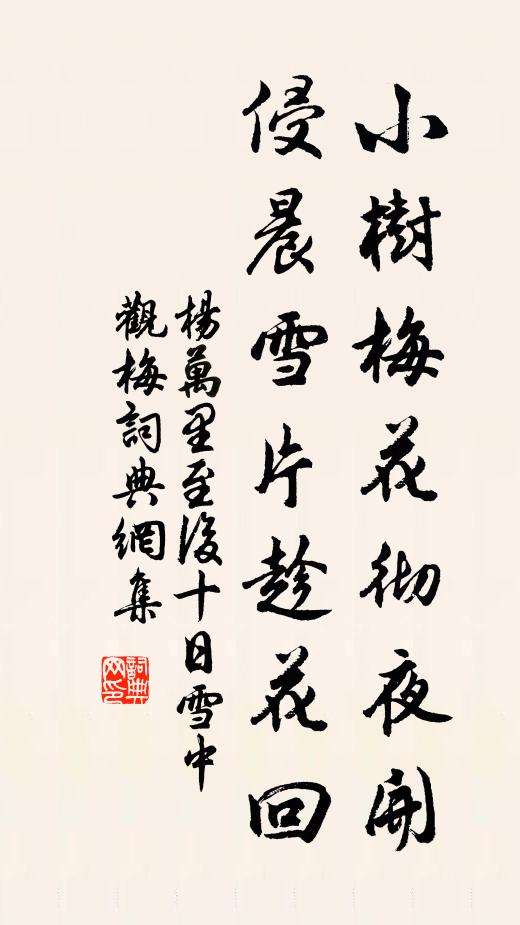 小樹梅花彻夜開
侵晨雪片趁花回
楊萬里至後十日雪中
觀梅詞典網集
詞典网印